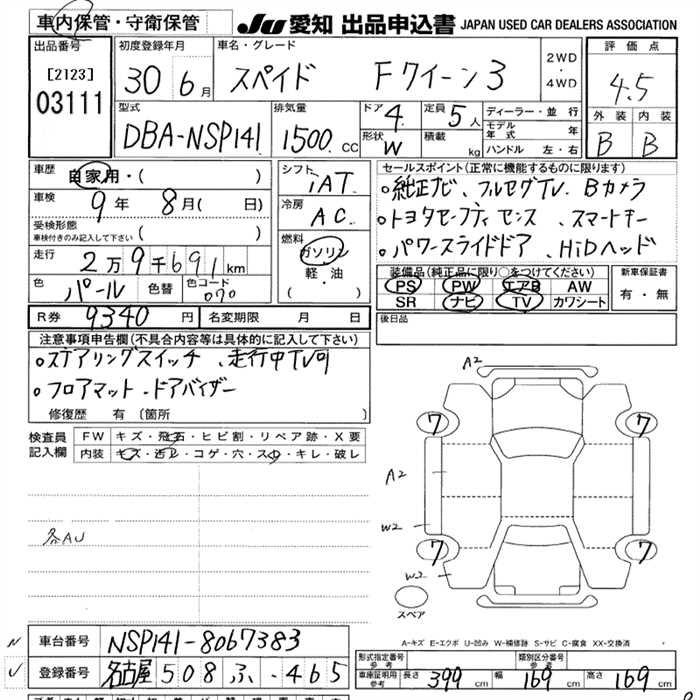 車内保管・守衛保管
JU 愛知 出品申込書 JAPAN USED CAR DEALERS ASSOCIATION
出品番号
[2123]
03111
初度登録年月
30 年 6 月
車名・グレード
スペイド Fクイーン3
2WD
・
4WD
評価点
4.5
型式
DBA-NSP141
排気量
1500 CC
ドア 4
定員 5 人
形状 W
積載 kg
ディーラー・並行
モデル年式 年
ハンドル 左・右
外装 内装
B B
車歴
自家用・( )
車検
9年 8月( 日)
受検形態
車検付きのみ記入して下さい ( )
走行
2万9千691km
色 パール 色替 色コード 070
シフト
iAT
冷房
AC
燃料
ガソリン
軽・油
( )
セールスポイント(正常に機能するものに限ります)
○純正ナビ、フルセグTV、Bカメラ
○トヨタセーフティセンス、スマートキー
○パワースライドドア、HiDヘッド
装備品(純正品に限り○をつけてください)
PS PW エアB AW
SR ナビ TV カワシート
新車保証書
有・無
R券 9340 円 名変期限 月 日
後日品
注意事項申告欄(不具合内容等は具体的に記入して下さい)
○ステアリングスイッチ、走行中TV可
○フロアマット、ドアバイザー
修復歴 有〔箇所 〕
検査員記入欄
FW キズ・飛石・ヒビ割・リペア跡・X要
内装 キズ・汚レ・コゲ・穴・スレ・キレ・破レ
各AU
A2
7 7
A2
W2
7 7
W2
スペア
A-キズ E-エクボ U-凹み W-補修跡 S-サビ C-腐食 XX-交換済
車台番号 NSP141-8067383
登録番号 名古屋 508 ふ -465
形式指定番号 参考
類別区分番号 参考
車庫証明用 参考 長さ 399 cm 幅 169 cm 高さ 169 cm